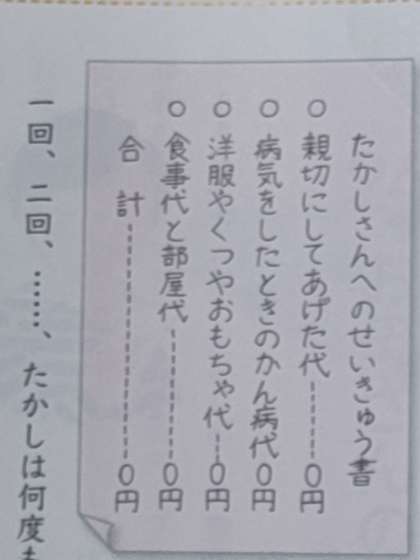 たかしさんへのせいきゅう書
○ 親切にしてあげた代------0円
○ 病気をしたときのかん病代 0円
○ 洋服やくつやおもちゃ代---0円
○ 食事代と部屋代------------0円
合 計----------------------0円
一回、二回、……、たかしは何度も